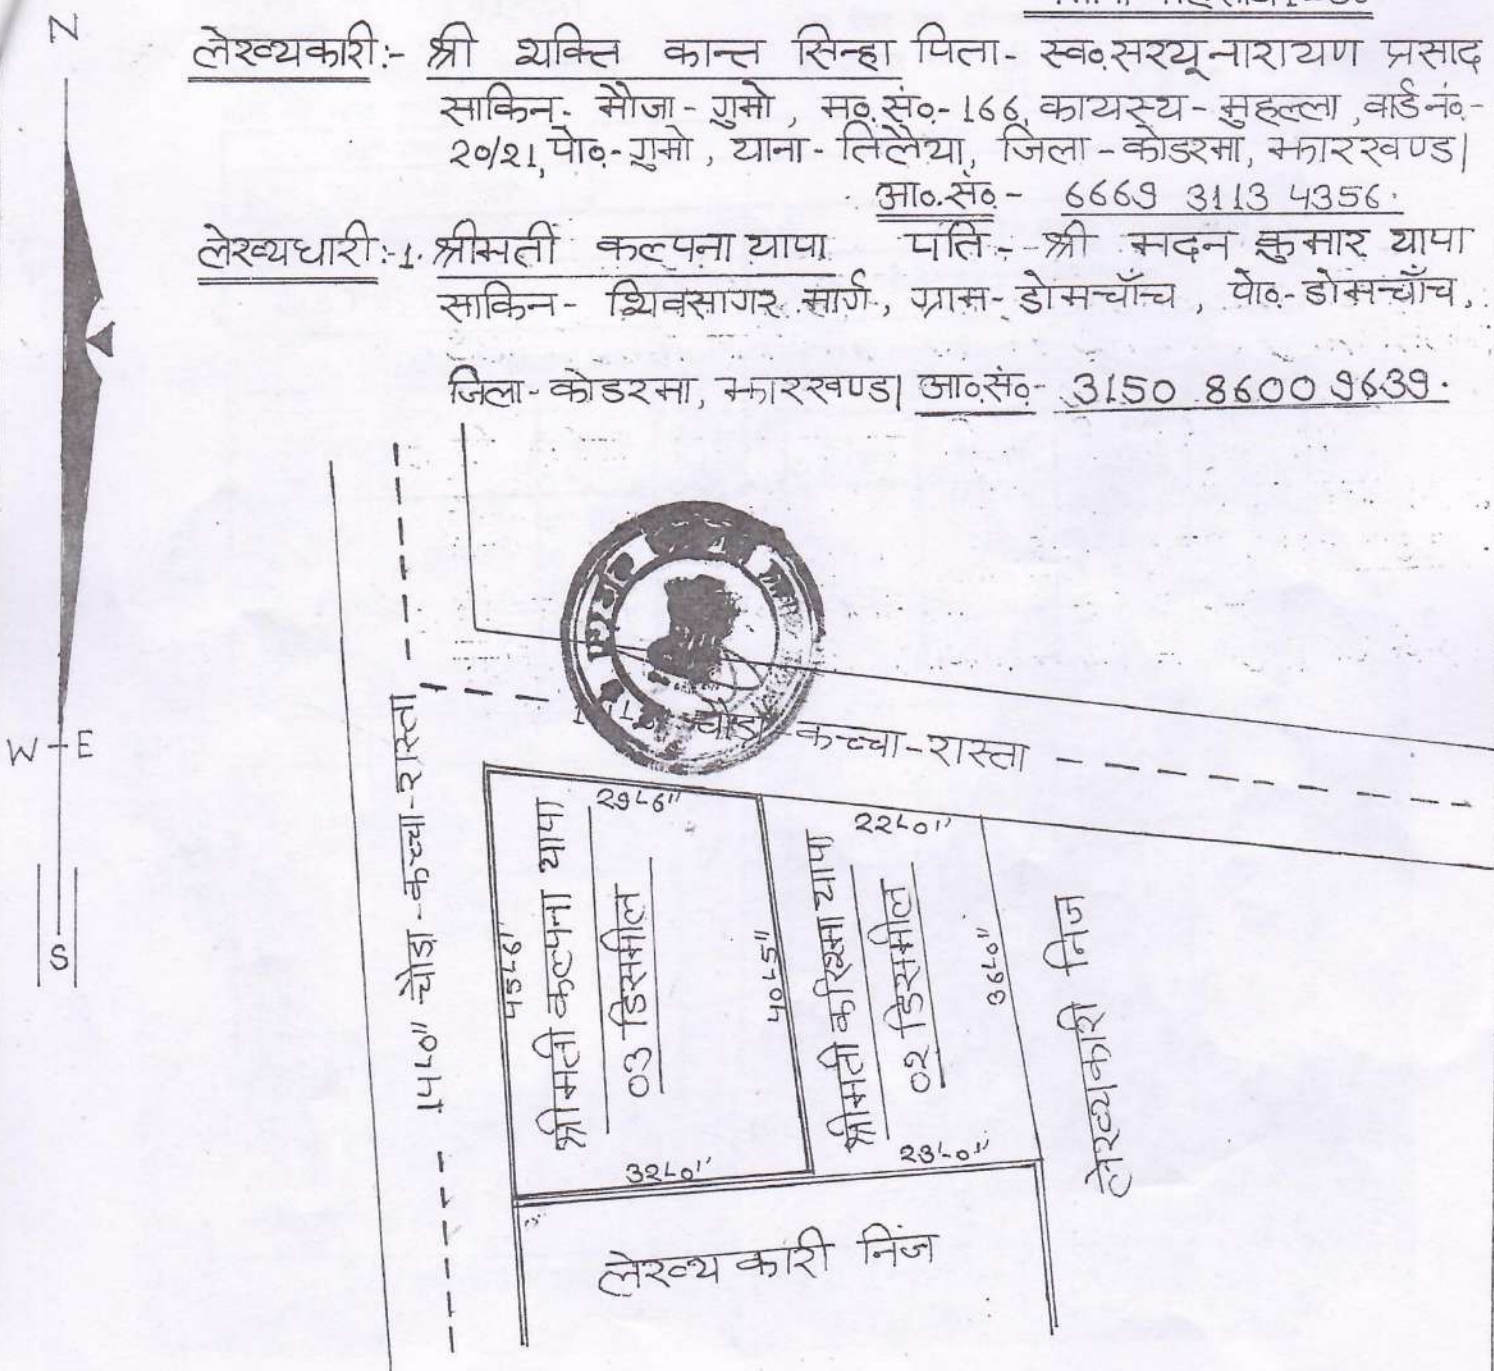 N
लेख्यकारी:- श्री शक्ति कान्त सिन्हा पिता- स्व०सरयू नारायण प्रसाद
साकिन- मौजा-गुमो, म०सं०-166, कायस्थ-मुहल्ला, वार्ड नं०-
20/21, पो०-गुमो, थाना-तिलैया, जिला-कोडरमा, झारखण्ड|
आ०सं०- 6669 3113 4356.
लेख्यधारी:-1. श्रीमती कल्पना थापा पति:- श्री मदन कुमार थापा
साकिन- शिवसागर मार्ग, ग्राम-डोमचाँच, पो०-डोमचाँच,
जिला-कोडरमा, झारखण्ड| आ०सं०- 3150 8600 9639.
W E
S
चौड़ा-कच्चा-रास्ता
14'-0" चौड़ा-कच्चा-रास्ता
29'-6"
45'-6"
श्रीमती कल्पना थापा
03 डिसमील
40'-5"
32'-0"
22'-0"
श्रीमती करिश्मा थापा
02 डिसमील
36'-0"
23'-0"
लेख्यकारी निज
लेख्यकारी निज